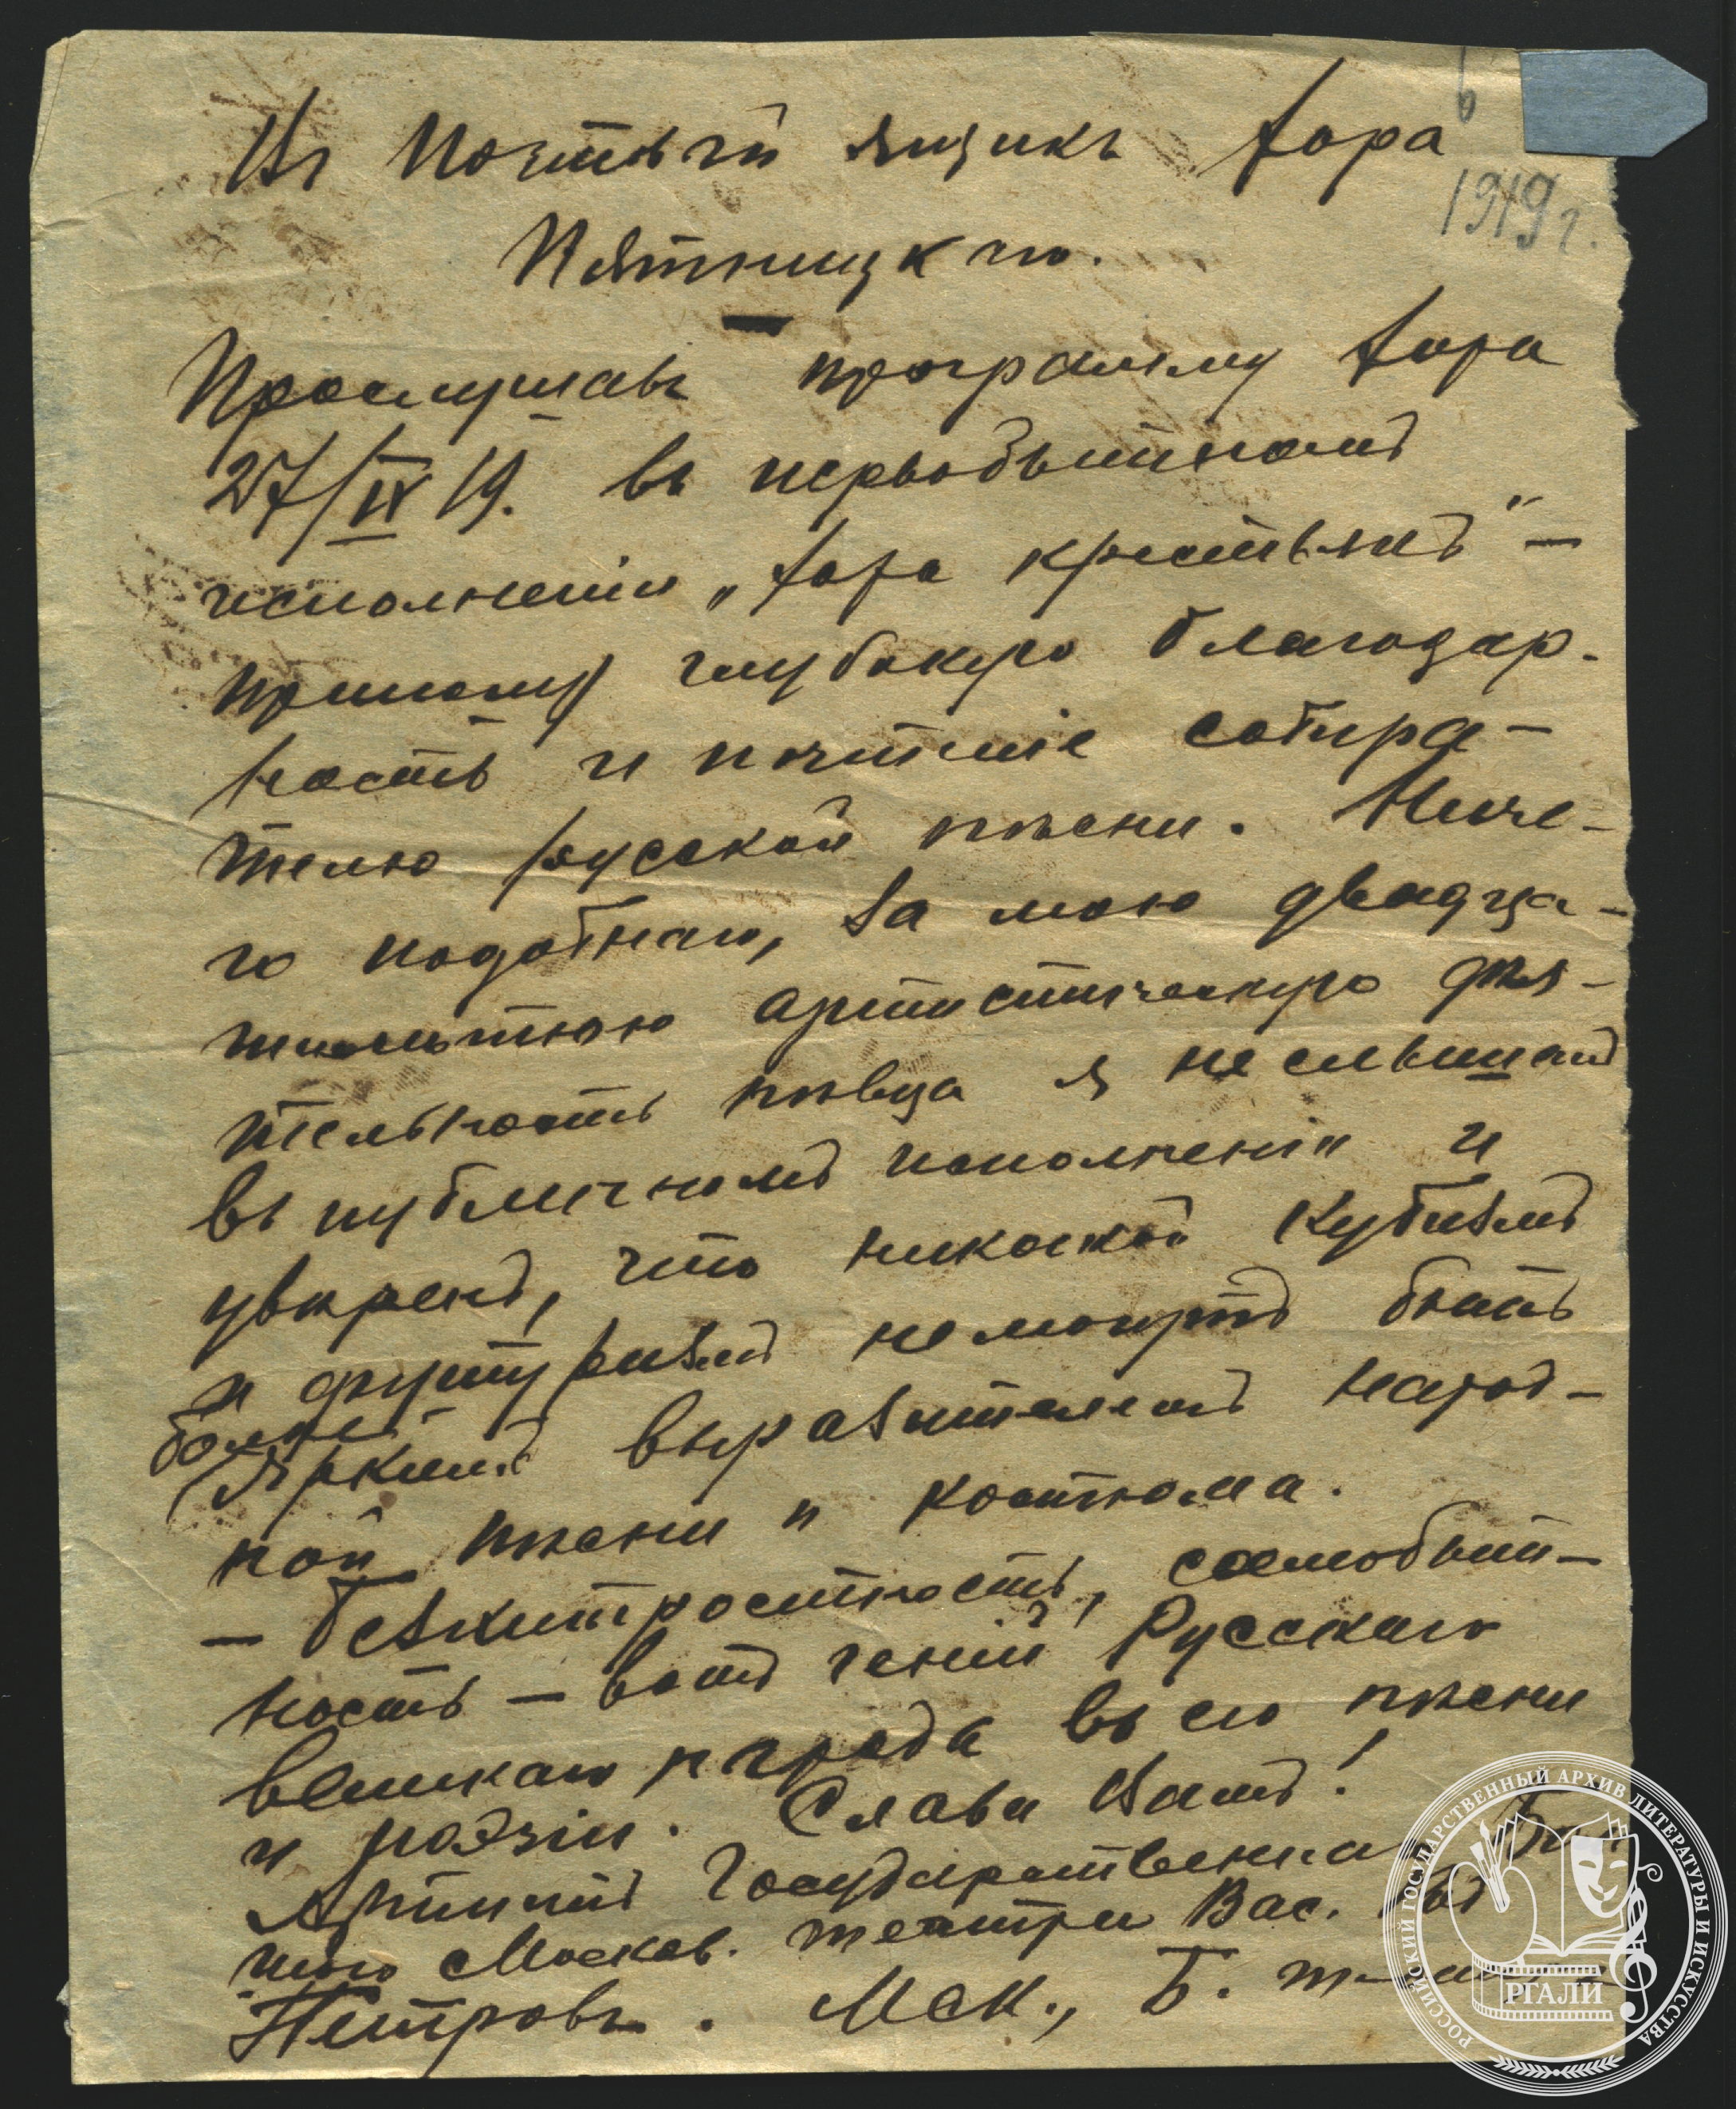 6
Въ Почтовый ящикъ хора
1919 г.
Пятницкаго.
Прослушавъ программу хора
27/IX 19. въ первобытномъ
исполненіи „хора крестьянъ" —
приношу глубокую благодар-
ность и почтеніе собира-
телю русской пѣсни. Ниче-
го подобнаго, за мою двадца-
тилѣтнюю артистическую дѣя-
тельность пѣвца я не слышалъ
въ публичномъ исполненіи и
увѣренъ, что никакой кубизмъ
и футуризмъ не могутъ быть
болѣе
яркимъ выразителемъ народ-
ной пѣсни и костюма.
— Безхитростность, самобыт-
ность — вотъ геній Русскаго
великаго народа въ его пѣсни
и поэзіи. Слава Вамъ!
Артистъ Государственнаго
Москов. театра Вас.
Петровъ. Мск., Б.
РОССИЙСКИЙ ГОСУДАРСТВЕННЫЙ АРХИВ ЛИТЕРАТУРЫ И ИСКУССТВА
РГАЛИ